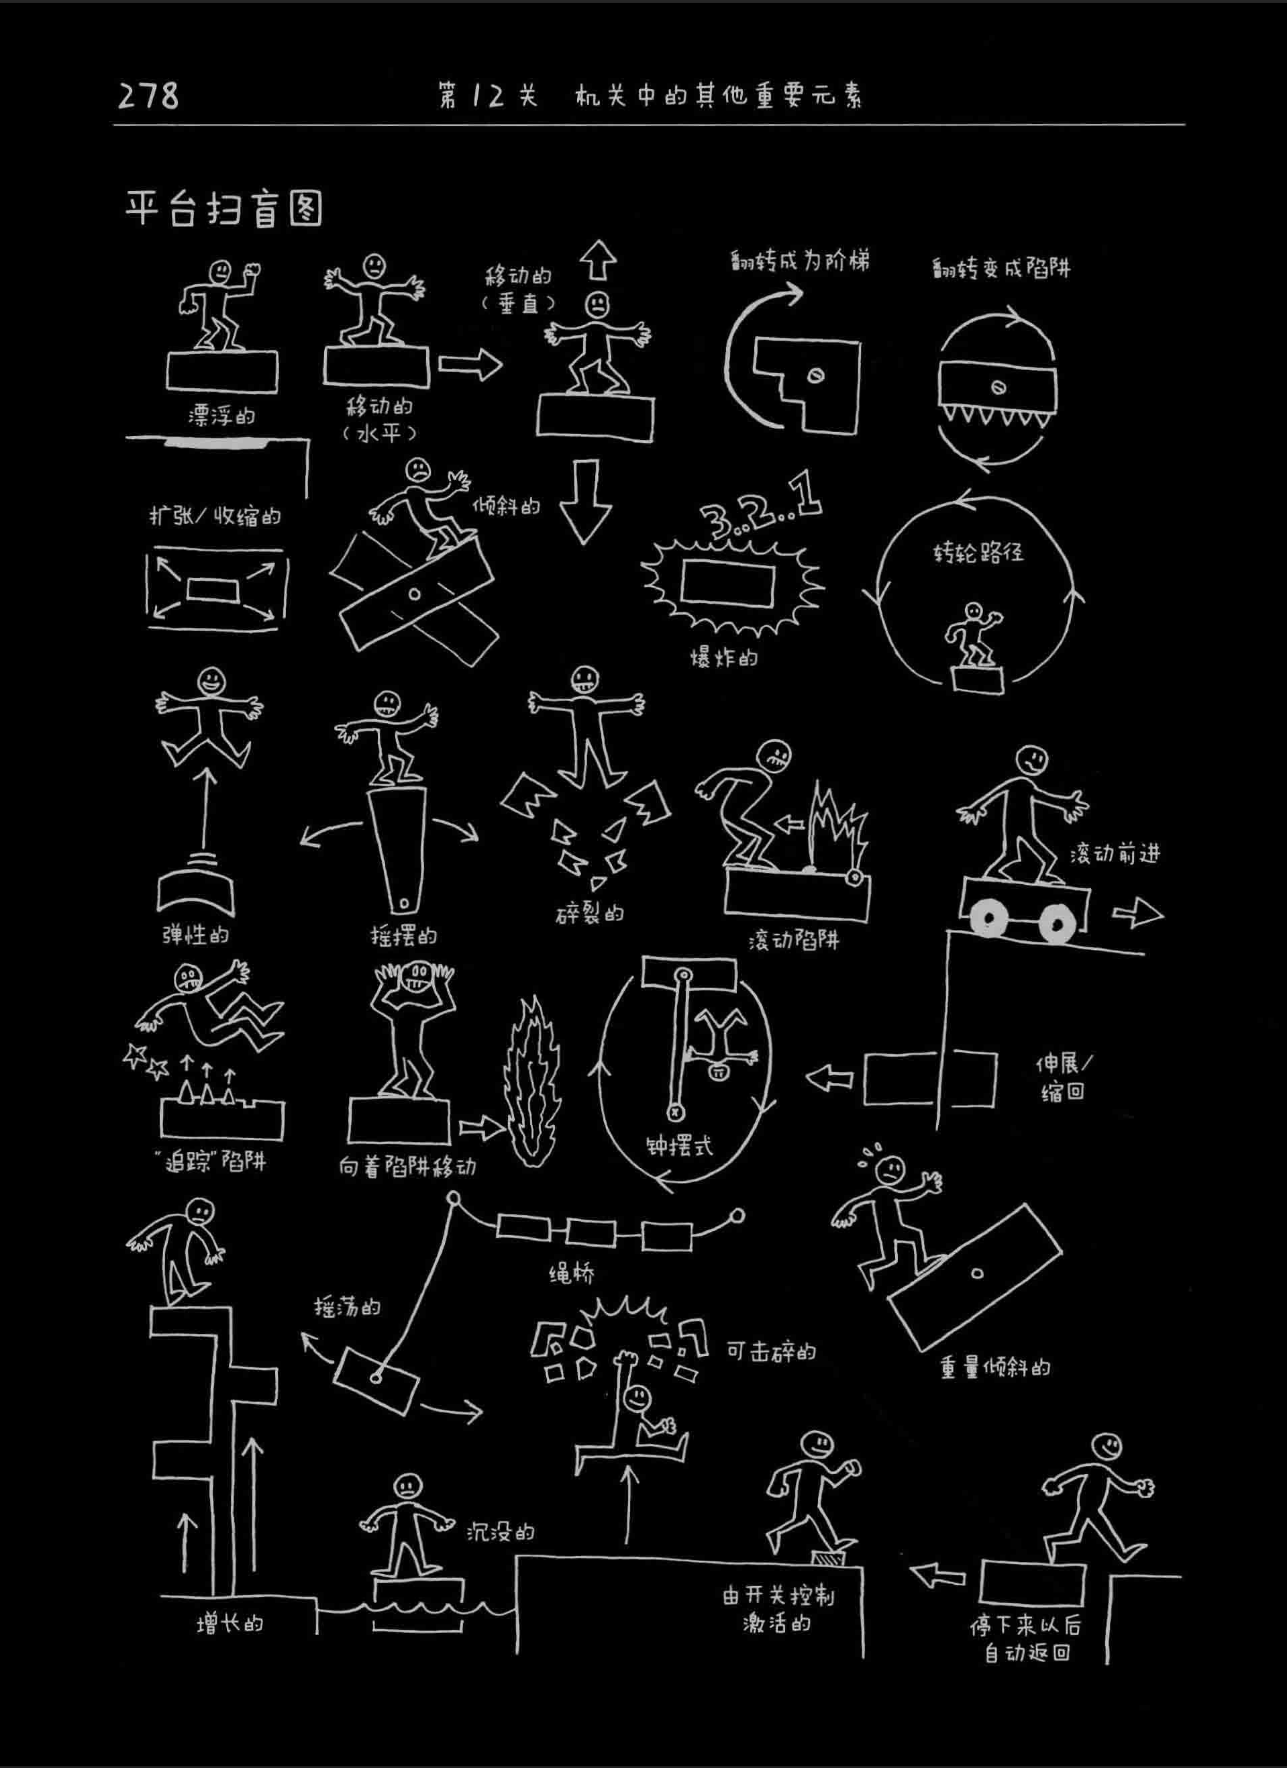 278
第12关 机关中的其他重要元素
平台扫盲图
漂浮的
移动的
（水平）
移动的
（垂直）
翻转成为阶梯
翻转变成陷阱
扩张/收缩的
倾斜的
3..2..1
爆炸的
转轮路径
弹性的
摇摆的
碎裂的
滚动陷阱
滚动前进
“追踪”陷阱
向着陷阱移动
钟摆式
伸展/
缩回
绳桥
摇荡的
可击碎的
重量倾斜的
增长的
沉没的
由开关控制
激活的
停下来以后
自动返回